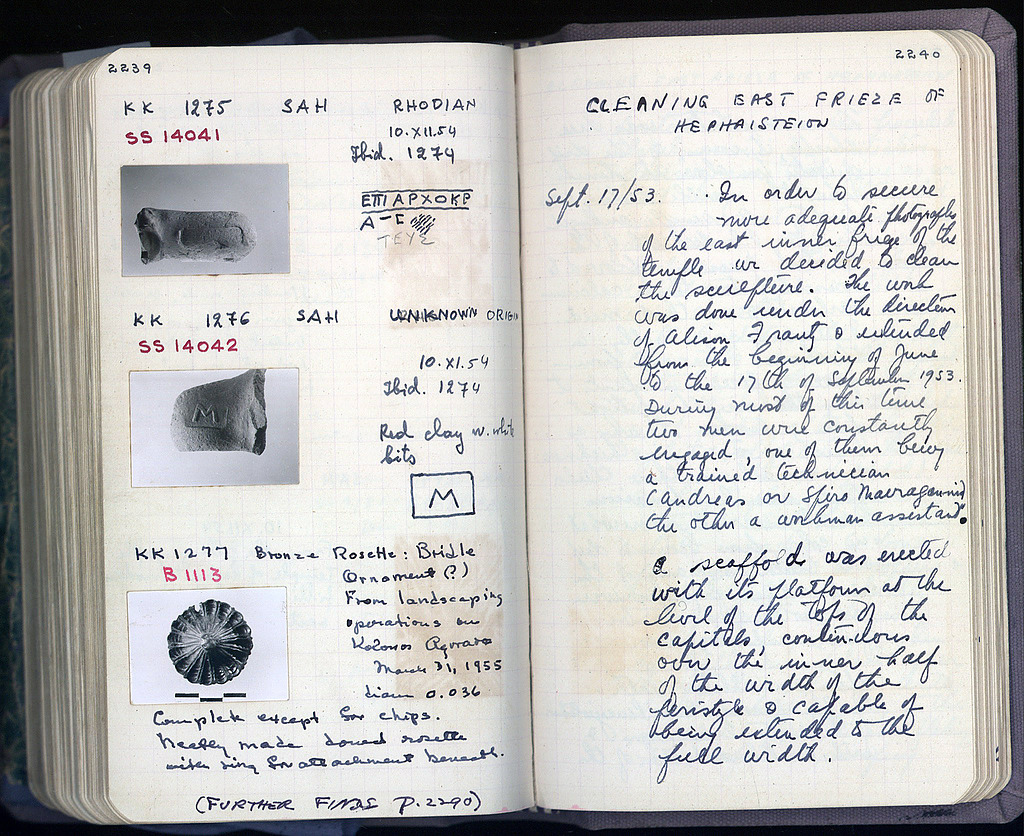 2239
KK 1275 SAH RHODIAN
SS 14041 10.XII.54
Ibid. 1274
ΕΠΙΑΡΧΟΚΡ
Α-Γ
ΤΕΥΣ
KK 1276 SAH UNKNOWN ORIGIN
SS 14042
10.XI.54
Ibid. 1274
MI
Red clay w. white
bits
M
KK 1277 Bronze Rosette: Bridle
B 1113 Ornament (?)
From landscaping
operations on
Kolonos Agoraios
March 31, 1955
diam 0.036
Complete except for chips.
Neatly made domed rosette
with ring for attachment beneath.
(FURTHER FINDS P. 2290)
2240
CLEANING EAST FRIEZE OF
HEPHAISTEION
Sept. 17/53. In order to secure
more adequate photographs
of the east inner frieze of the
temple we decided to clean
the sculpture. The work
was done under the direction
of Alison Frantz & extended
from the beginning of June
to the 17th of September 1953.
During most of this time
two men were constantly
engaged, one of them being
a trained technician
(Andreas or Spiro Mavragannis)
the other a workman assistant.
A scaffold was erected
with its platform at the
level of the tops of the
capitals, continuous
over the inner half
of the width of the
peristyle & capable of
being extended to the
full width.